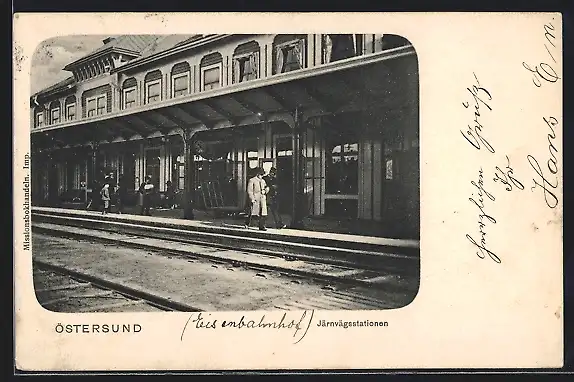 Missionsbokhandeln. Imp.
ÖSTERSUND (Eisenbahnhof) Järnvägsstationen
herzlichen Gruß
Ihr
Hans Em.